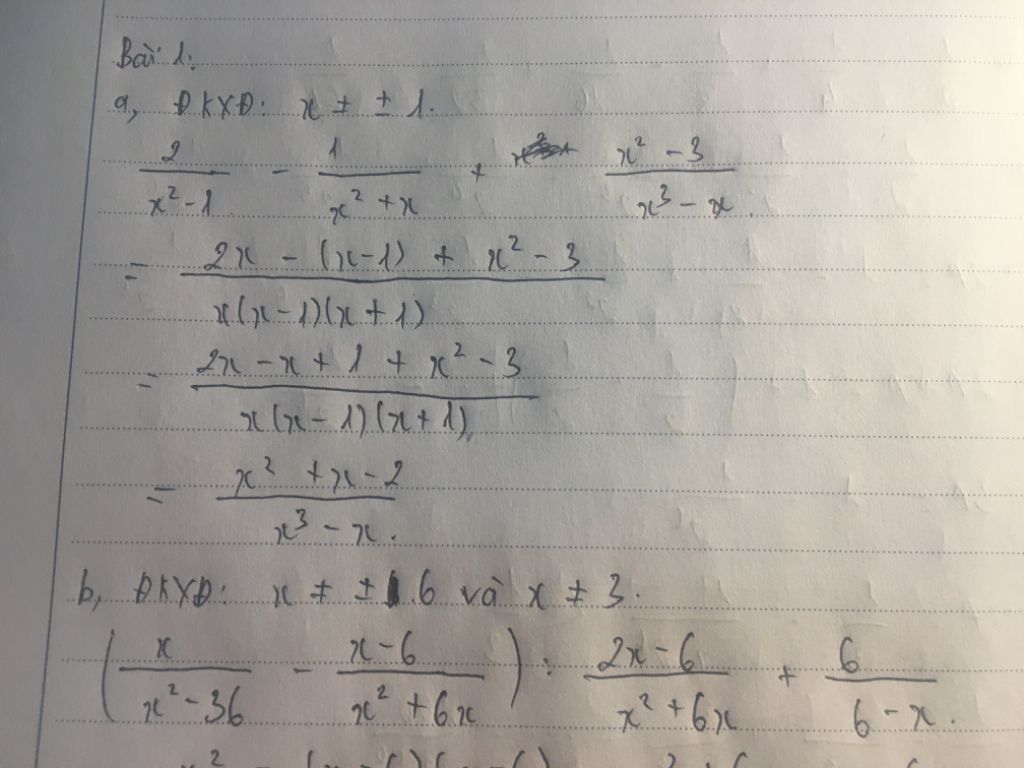 Bài 1:
a, ĐKXĐ: x ≠ ± 1.
2/(x² - 1) - 1/(x² + x) + (x² - 3)/(x³ - x).
= (2x - (x-1) + x² - 3)/(x(x-1)(x+1))
= (2x - x + 1 + x² - 3)/(x(x-1)(x+1))
= (x² + x - 2)/(x³ - x).
b, ĐKXĐ: x ≠ ± 6 và x ≠ 3.
(x/(x² - 36) - (x-6)/(x² + 6x)) : (2x-6)/(x² + 6x) + 6/(6-x).